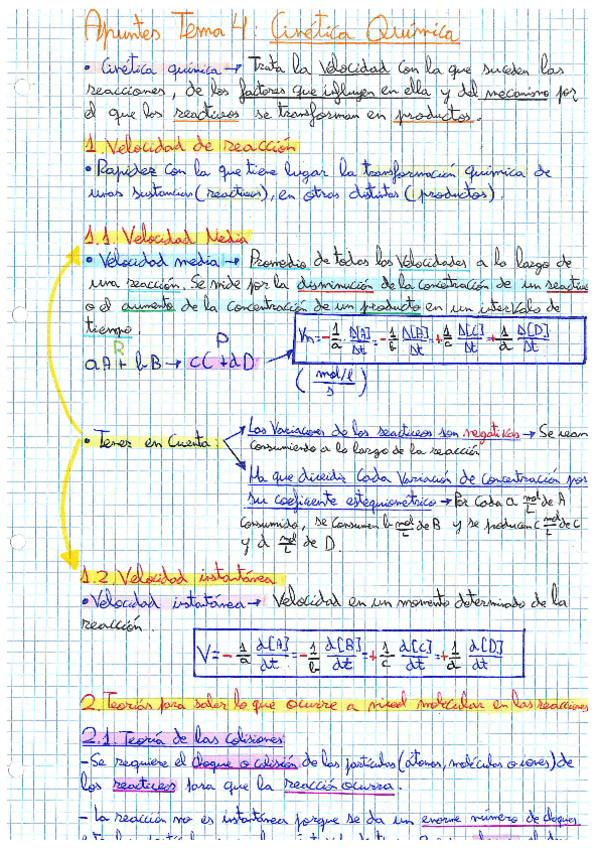 Apuntes Tema 4: Cinética Química
• Cinética química → Trata la Velocidad con la que suceden las
reacciones, de los factores que influyen en ella y del mecanismo por
el que los reactivos se transforman en productos.
1. Velocidad de reacción
• Rapidez con la que tiene lugar la transformación química de
unas sustancias (reactivos), en otras distintas (productos).
1.1. Velocidad Media
• Velocidad media → Promedio de todas las Velocidades a lo largo de
una reacción. Se mide por la disminución de la concetración de un reactivo
o el aumento de la concentración de un producto en un intervalo de
tiempo.
R P
aA + bB → cC + dD
Vm = -1/a · Δ[A]/Δt = -1/b Δ[B]/Δt = +1/c Δ[C]/Δt = +1/d Δ[D]/Δt
(mol/l / s)
• Tener en Cuenta:
Las Variaciones de los reactivos son negativas → Se vean
consumiendo a lo largo de la reacción
Ha que dividir Cada Variación de concentración por
su coeficiente estequiométrico → Por Cada a mol/L de A
consumido, se consumen b mol/L de B y se producen c mol/L de C
y d mol/L de D.
1.2. Velocidad instantánea
• Velocidad instantánea → Velocidad en un momento determinado de la
reacción.
V = -1/a d[A]/dt = -1/b d[B]/dt = +1/c d[C]/dt = +1/d d[D]/dt
2. Teorías para saber lo que ocurre a nivel molécular en las reacciones
2.1. Teoría de las Colisiones
- Se requiere el choque o colisión de las partículas (átomos, moléculas o iones) de
los reactivos para que la reacción ocurra.
- La reacción no es instantánea porque se da un enorme número de choques